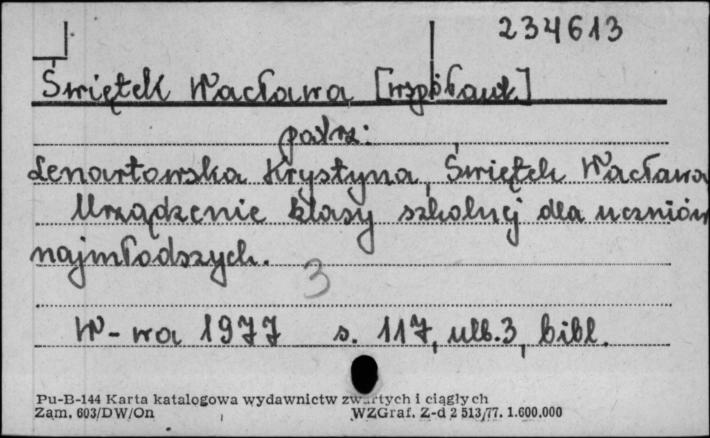 234613
Świętek Wacława [współaut.]
patrz:
Lenartowska Krystyna, Świętek Wacława
Urządzenie klasy szkolnej dla uczniów
najmłodszych.
3
W-wa 1977 s. 117, ulb. 3, bibl.
Pu-B-144 Karta katalogowa wydawnictw zwartych i ciągłych
Zam. 603/DW/On WZGraf. Z-d 2 513/77. 1.600.000